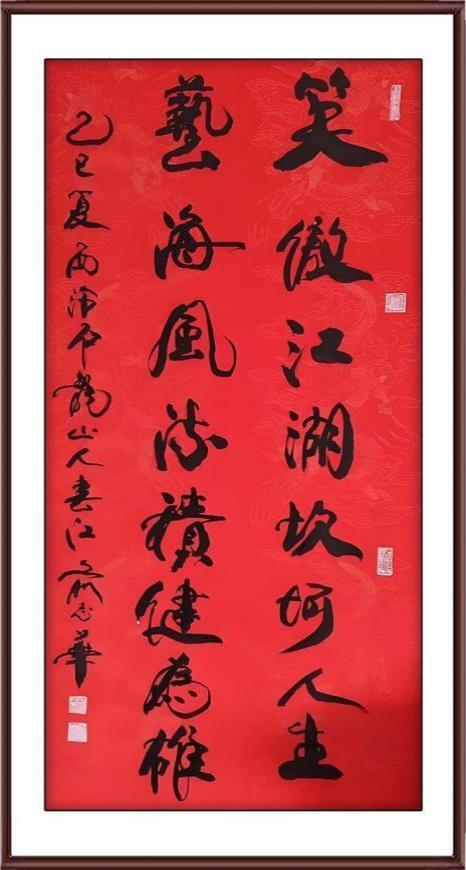 笑傲江湖坎坷人生
藝海風流積健為雄
乙巳夏西泠龍山人春江志華